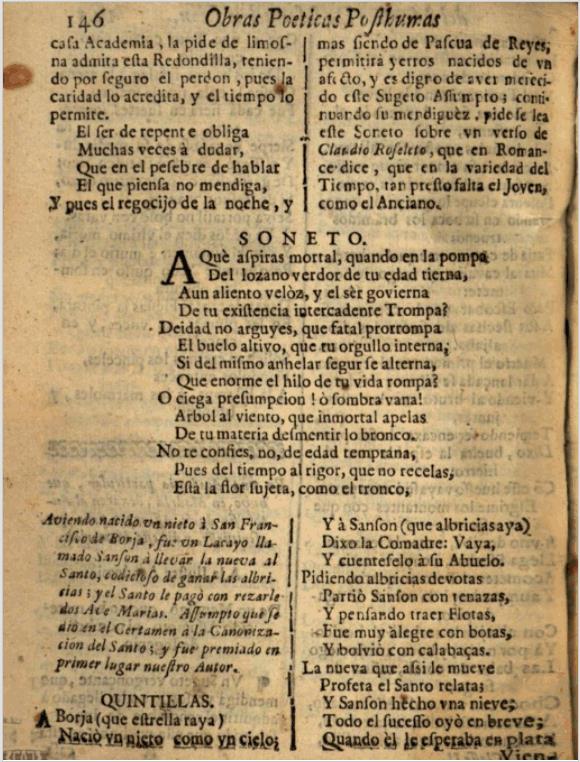 146 Obras Poeticas Posthumas
casa Academia, la pide de limos-
na admita esta Redondilla, tenien-
do por seguro el perdon, pues la
caridad lo acredita, y el tiempo lo
permite.
El ser de repente obliga
Muchas veces à dudar,
Que en el pesebre de hablar
El que piensa no mendiga,
Y pues el regocijo de la noche, y
mas siendo de Pascua de Reyes,
permitirà yerros nacidos de vn
afecto, y es digno de aver mereci-
do este Sugeto Assumpto; conti-
nuando su mendiguèz, pide se lea
este Soneto sobre vn verso de
Claudio Roseleto, que en Roman-
ce dice, que en la variedad del
Tiempo, tan presto falta el Joven,
como el Anciano.
SONETO.
A Què aspiras mortal, quando en la pompa
Del lozano verdor de tu edad tierna,
Aun aliento velòz, y el sèr govierna
De tu existencia intercadente Trompa?
Deidad no arguyes, que fatal prorrompa
El buelo altivo, que tu orgullo interna;
Si del mismo anhelar segur se alterna,
Que enorme el hilo de tu vida rompa?
O ciega presumpcion! ò sombra vana!
Arbol al viento, que inmortal apelas
De tu materia desmentir lo bronco.
No te confies, no, de edad temprana,
Pues del tiempo al rigor, que no recelas,
Està la flor sujeta, como el tronco,
Aviendo nacido vn nieto à San Fran-
cisco de Borja, fue vn Lacayo lla-
mado Sansòn à llevar la nueva al
Santo, codicioso de ganar las albri-
cias; y el Santo le pagò con rezarle
dos Ave Marias. Assumpto que se
diò en el Certamen à la Canoniza-
cion del Santo; y fue premiado en
primer lugar nuestro Autor.
QUINTILLAS.
A Borja (que estrella raya)
Naciò vn nieto como vn cielo;
Y à Sanson (que albricias aya)
Dixo la Comadre: Vaya,
Y cuenteselo à su Abuelo.
Pidiendo albricias devotas
Partiò Sanson con tenazas,
Y pensando traer Flotas,
Fue muy alegre con botas,
Y bolviò con calabaças.
La nueva que assi le mueve
Profeta el Santo relata;
Y Sanson hecho vna nieve,
Todo el sucesso oyò en breve;
Quando èl le esperaba en plata
Vien-